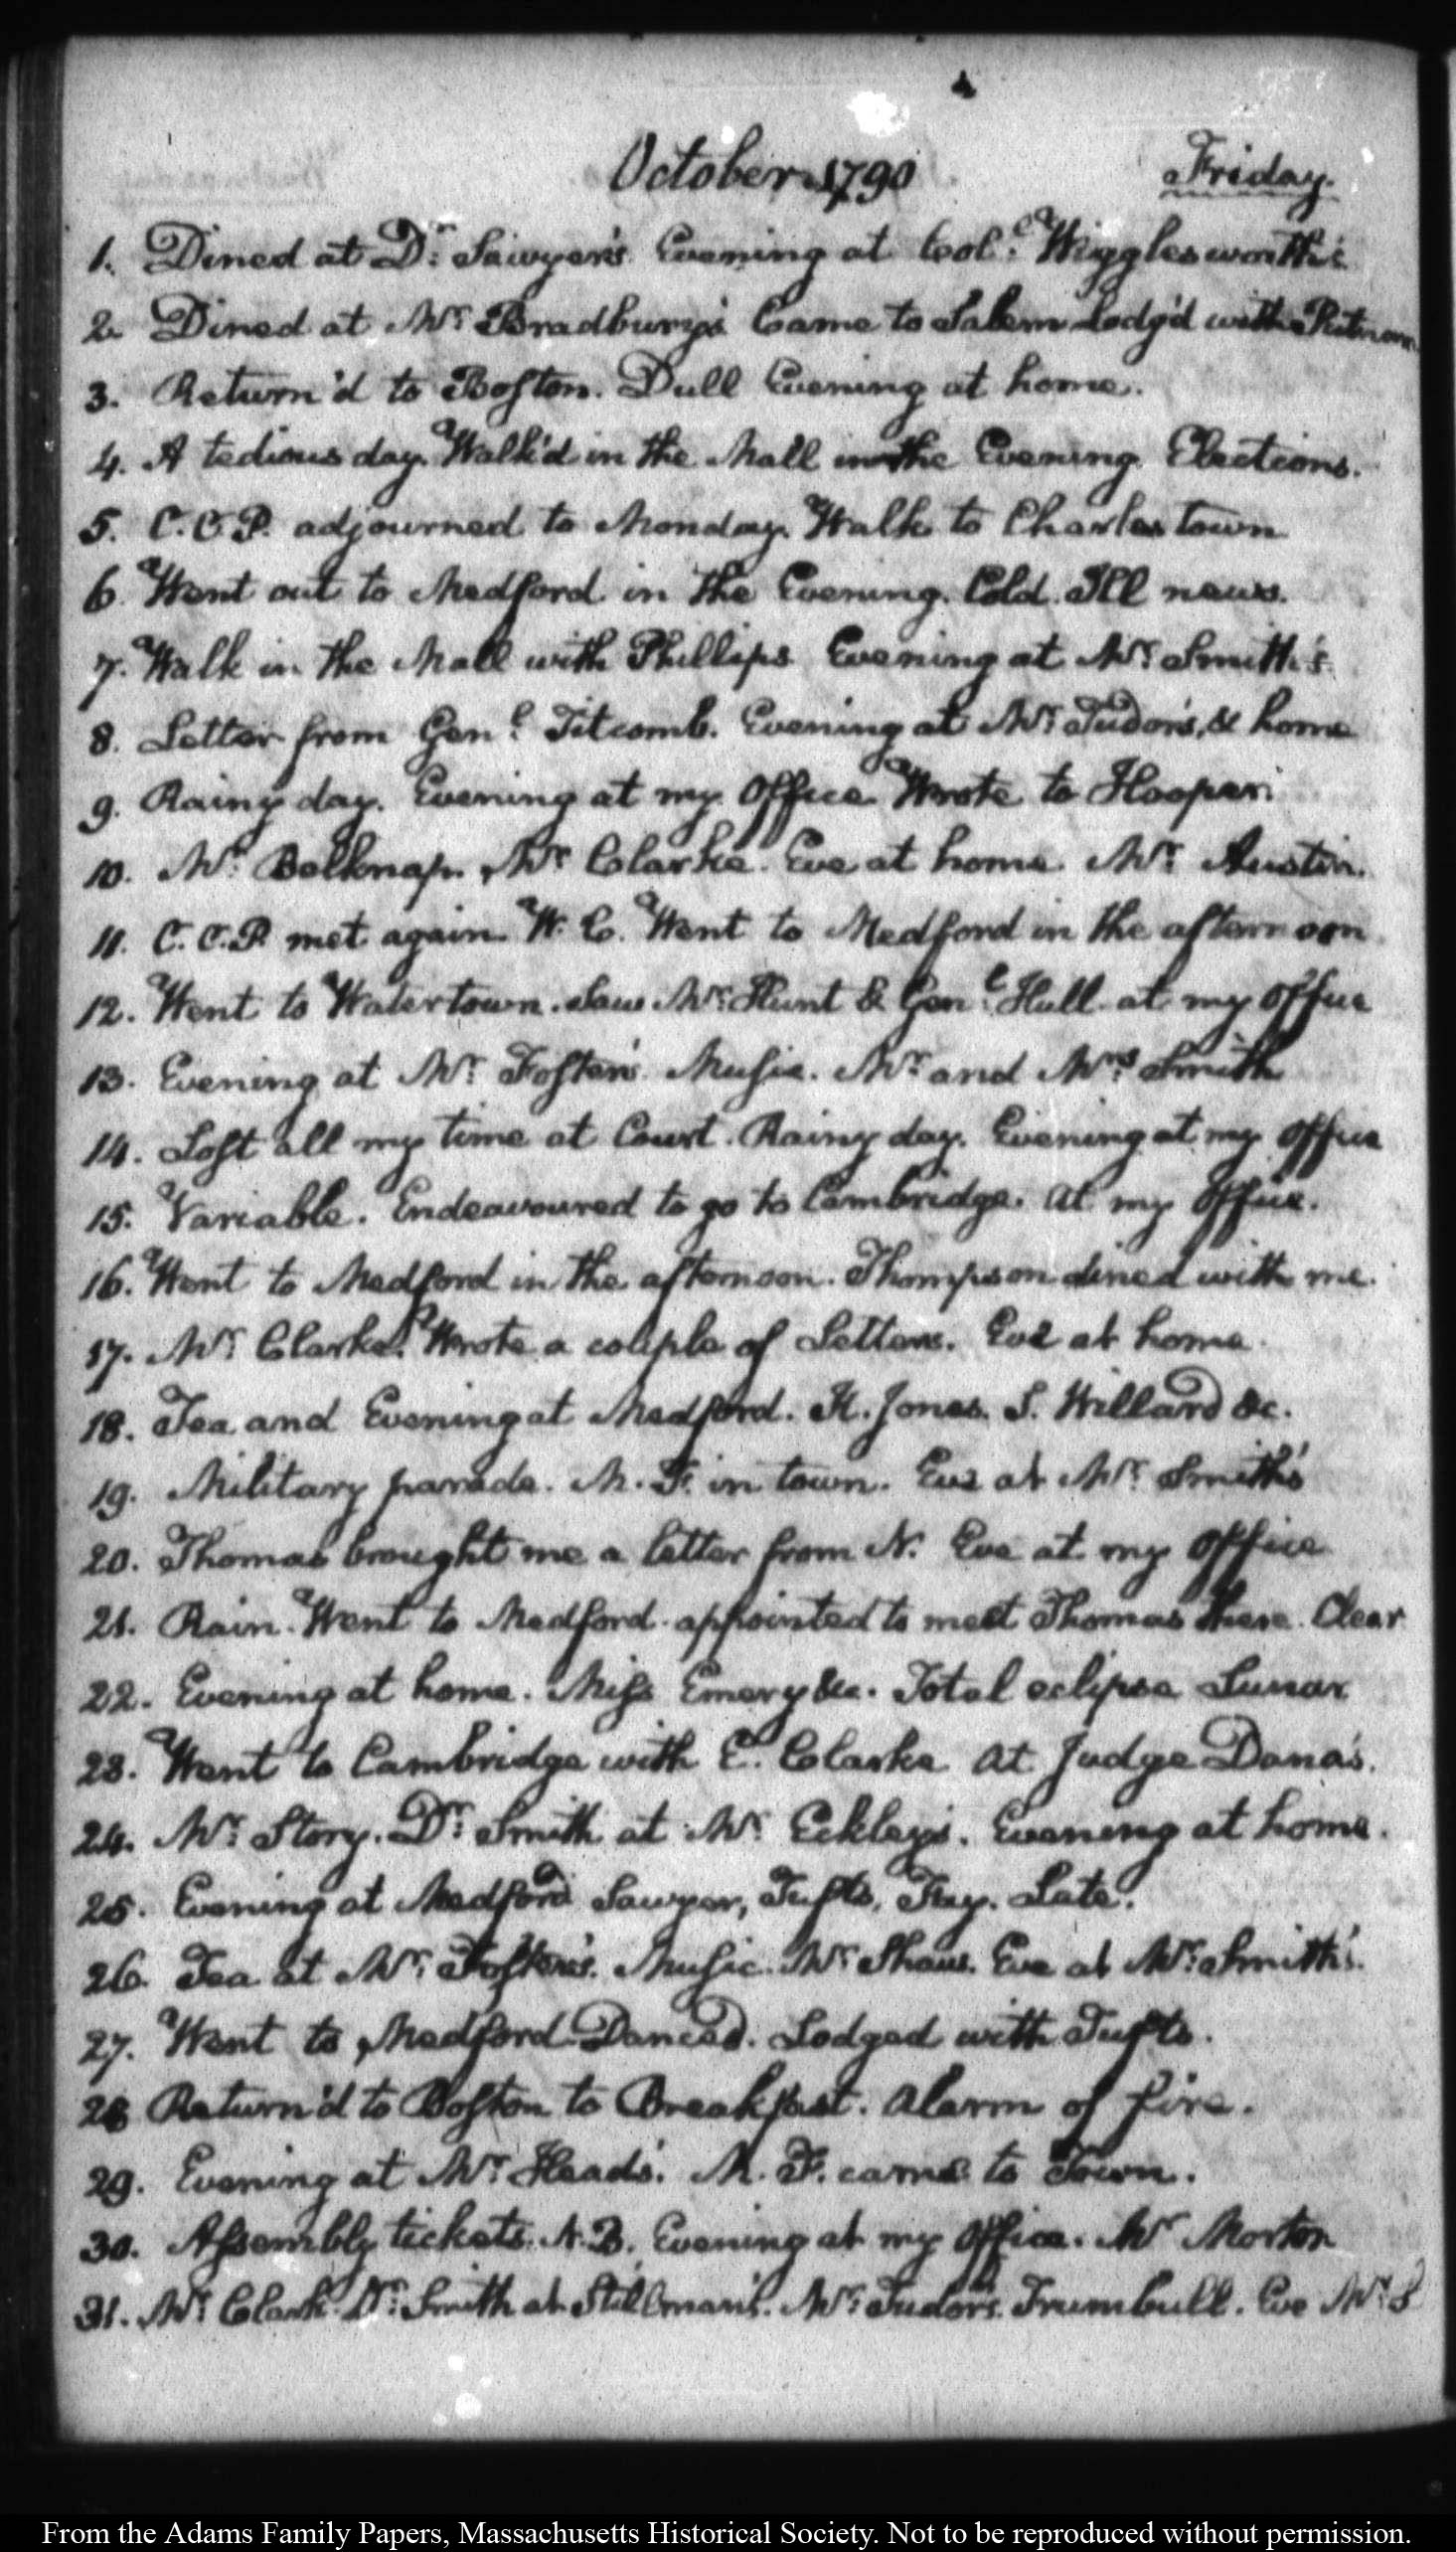 October 1790 Friday.
1. Dined at Dr. Sawyer's. Evening at Coll. Wigglesworth's
2. Dined at Mr. Bradbury's Came to Salem Lodg'd with Putnam
3. Return'd to Boston. Dull Evening at home.
4. A tedious day. Walk'd in the Mall in the Evening. Elections.
5. C.C.P. adjourned to Monday. Walk to Charlestown
6. Went out to Medford in the Evening. Cold. Ill news.
7. Walk in the Mall with Phillips. Evening at Mr. Smith's.
8. Letter from Genl. Titcomb. Evening at Mr. Tudor's, & home
9. Rainy day. Evening at my Office. Wrote to Hooper.
10. Mr. Belknap. Mr. Clarke. Eve at home. Mr. Austin.
11. C.C.P. met again. W.C. Went to Medford in the afternoon.
12. Went to Watertown. Saw Mr. Hunt & Genl. Hull at my Office
13. Evening at Mr. Foster's. Music. Mr. and Mrs. Smith
14. Lost all my time at Court. Rainy day. Evening at my Office
15. Variable. Endeavoured to go to Cambridge. at my Office.
16. Went to Medford in the afternoon. Thompson dined with me.
17. Mr. Clarke. Wrote a couple of Letters. Eve at home.
18. Tea and Evening at Medford. K. Jones. S. Willard &c.
19. Military parade. M.F. in town. Eve at Mr. Smith's
20. Thomas brought me a letter from N. Eve at my Office
21. Rain. Went to Medford. appointed to meet Thomas there. Clear
22. Evening at home. Miss Emery &c. Total eclipse Lunar
23. Went to Cambridge with E. Clarke. at Judge Dana's.
24. Mr. Story. Dr. Smith at Mr. Eckley's. Evening at home.
25. Evening at Medford Sawyer, Tufts, Late.
26. Tea at Mr. Foster's. Music. Mr. Shaw. Eve at Mr. Smith's.
27. Went to Medford. Danced. Lodged with Tufts.
28 Return'd to Boston to Breakfast. Alarm of fire.
29. Evening at Mr. Head's. M.F. came to Town.
30. Assembly tickets. N.B. Evening at my Office. Mr. Morton
31. Mr. Clark. Dr. Smith at Stillman's. Mr. Tudor's. Trumbull. Eve Mr. S
From the Adams Family Papers, Massachusetts Historical Society. Not to be reproduced without permission.